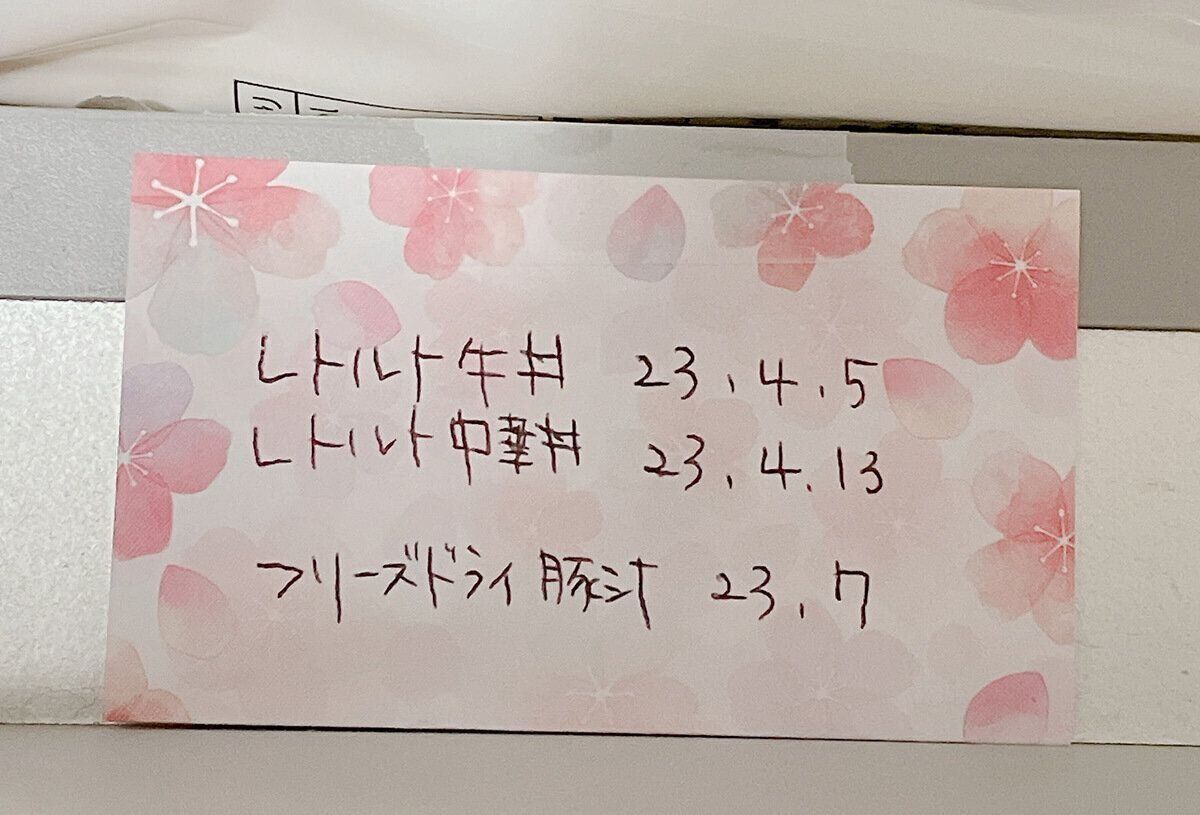 レトルト牛丼 23.4.5
レトルト中華丼 23.4.13
フリーズドライ豚汁 23.7